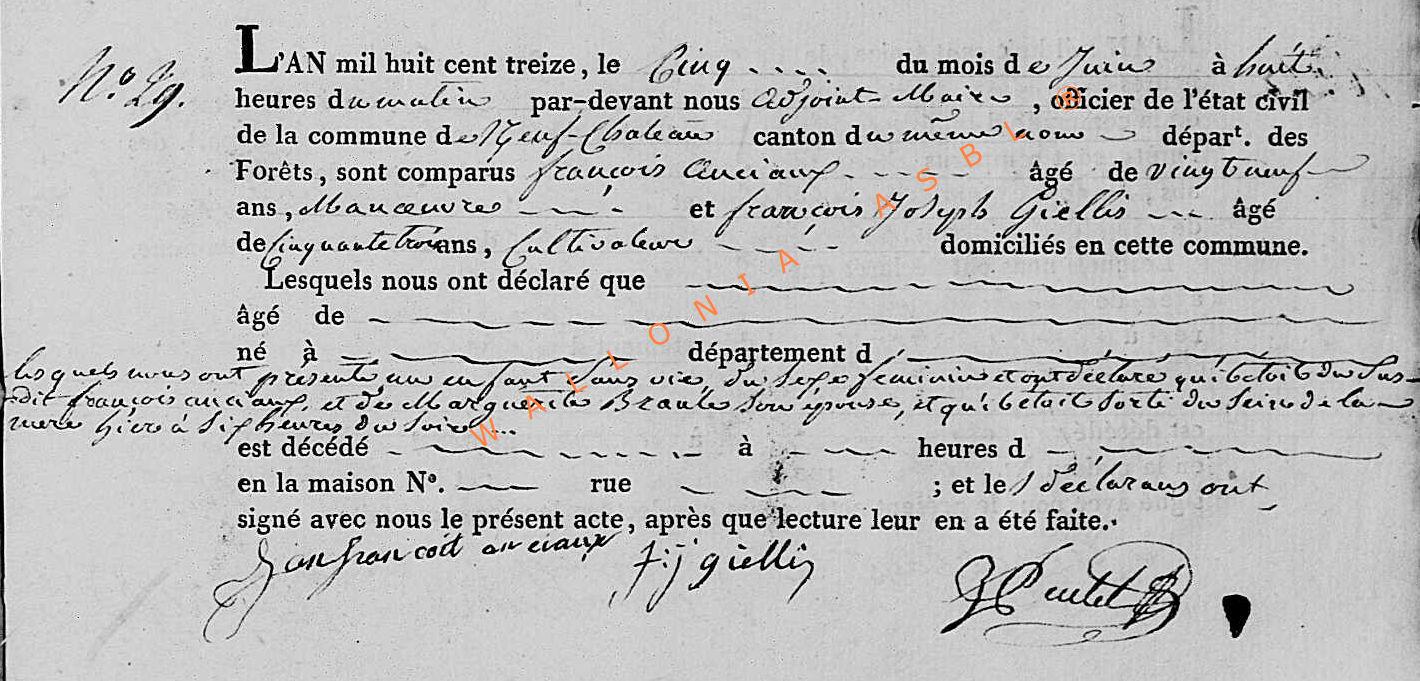 No. 29.
L'AN mil huit cent treize, le Cinq du mois de Juin à huit
heures du matin par-devant nous adjoint Maire, officier de l'état civil
de la commune de Neuf-Chateau canton du même nom départ. des
Forêts, sont comparus françois anciaux âgé de vingt neuf
ans, Manœuvre et françois Joseph Giellis âgé
de Cinquante trois ans, Cultivateur domiciliés en cette commune.
Lesquels nous ont déclaré que
âgé de
né à département d
les quels nous ont présenté un enfant Sans vie, du Sexe feminin et ont déclaré qu'il etoit du Sus-
dit françois anciaux, et de Marguerite Son épouse, et qu'il etait Sorti du Sein de la
mere hier à Six heures du Soir
est décédé à heures d
en la maison No. rue ; et les déclarans ont
signé avec nous le présent acte, après que lecture leur en a été faite.
Jan francoit anciaux f: j giellis
WALLONIA ASBL ©